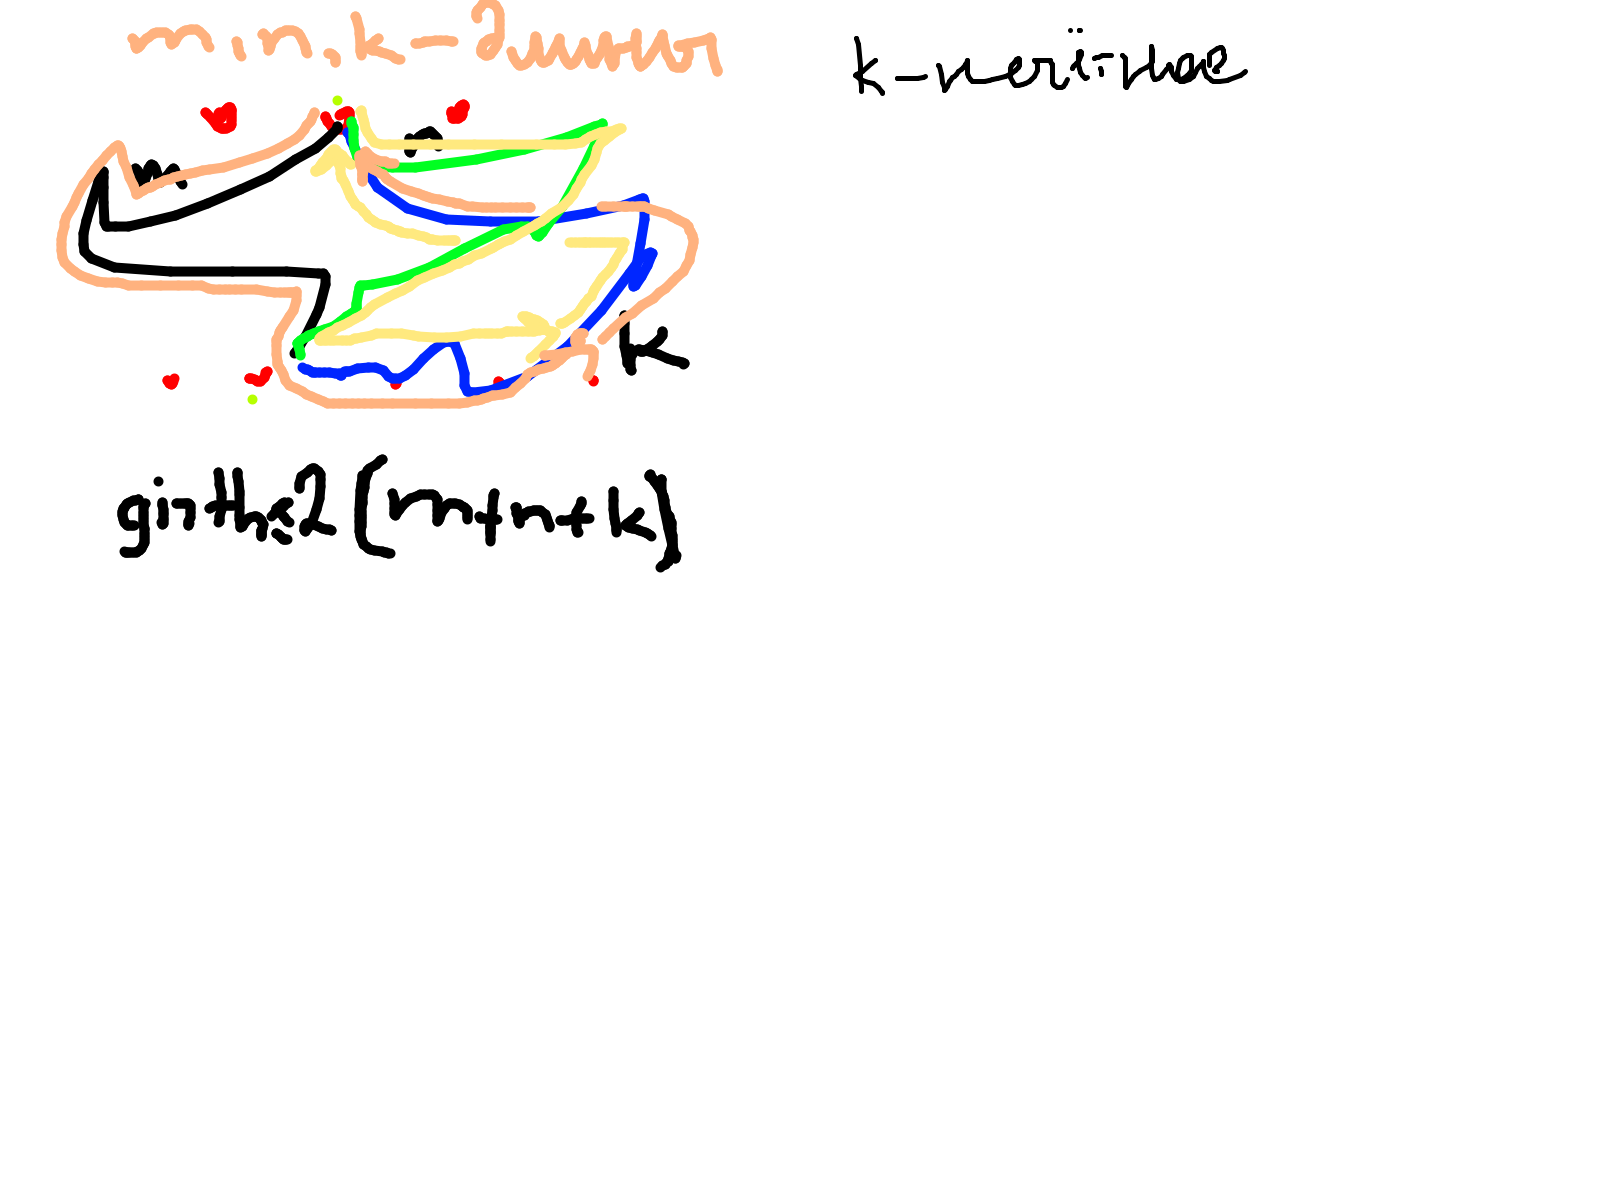 m, n, k - длины
k - нечётное
m
n
k
girth ≤ 2(m+n+k)